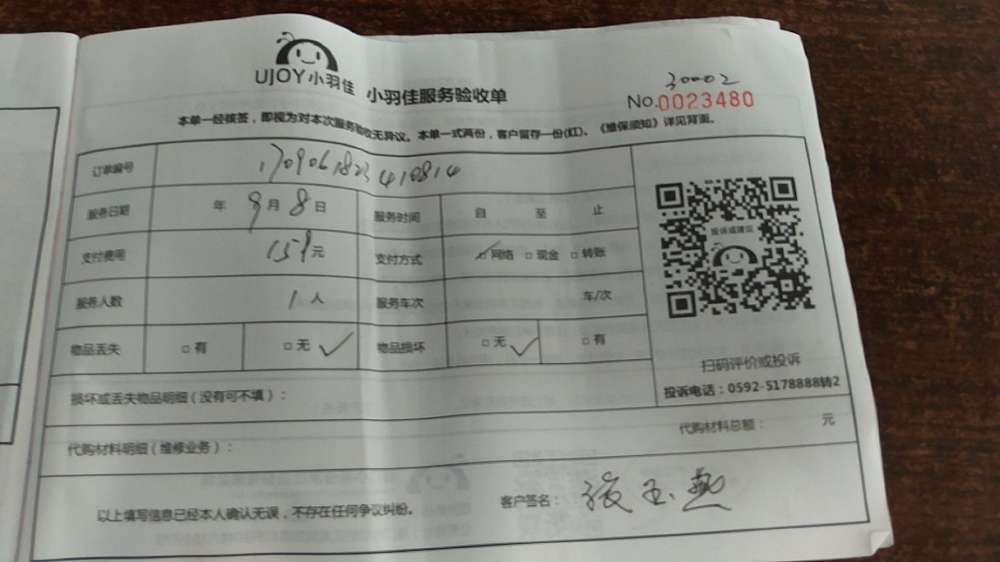 UJOY小羽佳
小羽佳服务验收单
30002
No.0023480
本单一经核签，即视为对本次服务验收无异议。本单一式两份，客户留存一份(红)。《维保须知》详见背面。
订单编号 1709061823410814
服务日期 年 9月8日 服务时间 自 至 止
支付费用 159元 支付方式 网络 □现金 □转账
服务人数 1人 服务车次 车/次
物品丢失 □有 □无 ✓ 物品损坏 □无 ✓ □有
投诉或建议
扫码评价或投诉
投诉电话：0592-5178888转2
损坏或丢失物品明细（没有可不填）：
代购材料明细（维修业务）： 代购材料总额： 元
以上填写信息已经本人确认无误，不存在任何争议纠纷。 客户签名： 张玉燕